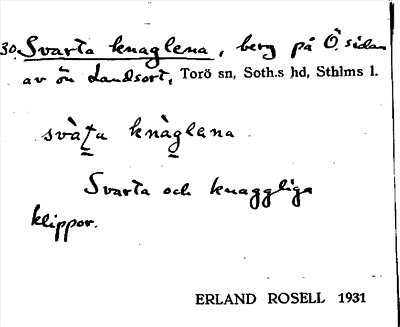 30. Svarta knaglena, berg på Ö. sidan
av ön Landsort, Torö sn, Soth.s hd, Sthlms l.
svàṯa knàg̱lena
Svarta och knaggliga
klippor.
ERLAND ROSELL 1931